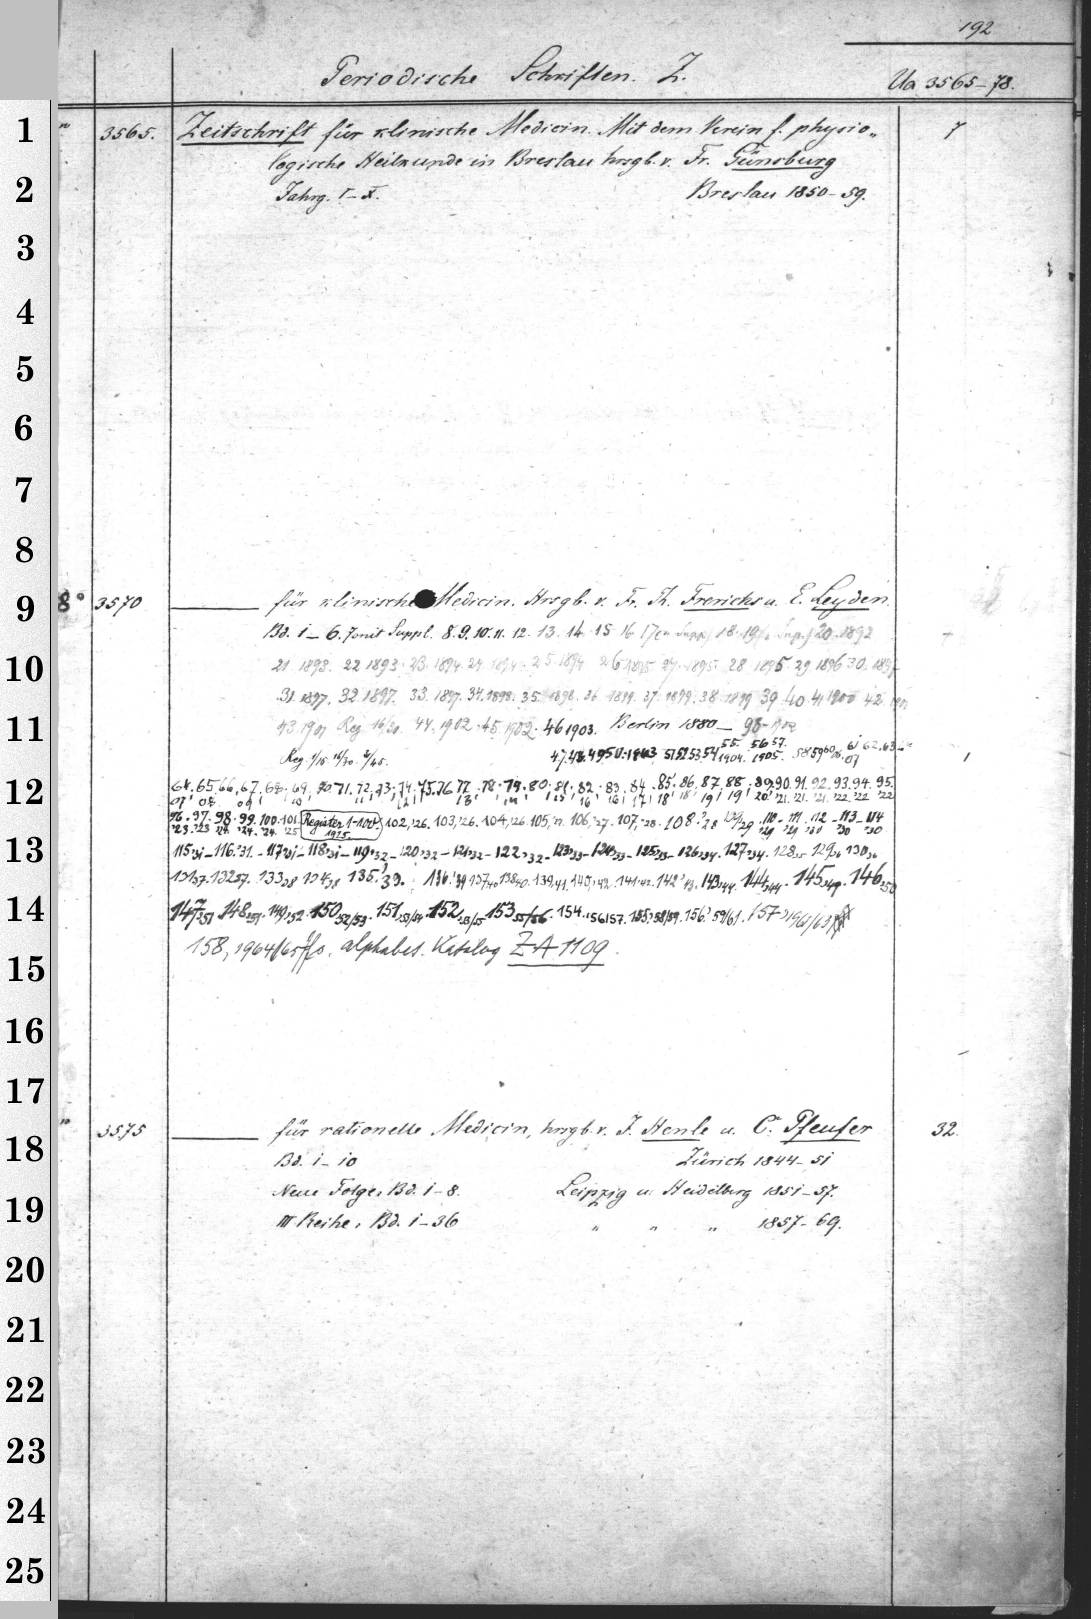 192
Periodische Schriften. Z.
Ua 3565-78.
1
" 3565. Zeitschrift für klinische Medicin. Mit dem Verein f. physio„ 7
logische Heilkunde in Breslau hrsgb. v. Fr. Günsburg
2
Jahrg. I-X. Breslau 1850-59.
3
4
5
6
7
8
9
8° 3570 ——— für klinische Medicin. Hrsgb. v. Fr. Th. Frerichs u. E. Leyden.
Bd. 1-6. 7 mit Suppl. 8. 9. 10. 11. 12. 13. 14. 15 16 17 18. 19 20. 1892
10
21 1893. 22 1893. 23. 1894. 24 1894. 25 1894 26 1895 27. 1895. 28 1895. 29 1896 30. 1896
31. 1897. 32 1897. 33. 1897. 34. 1898. 35 1898. 36 1899. 37. 1899. 38. 1899 39 40. 41 1900 42.
11
43. 1901 Reg. 16/30. 44. 1902. 45. 1902. 46 1903. Berlin 1880—
Reg. 1/15. 47. 48. 49 50. 1903 51 52 53 54 1904. 55. 56 57. 1905. 58 59 60 61 62. 63
12
64. 65. 66. 67. 68. 69. 70. 71. 72. 73. 74. 75. 76 77. 78. 79. 80. 81. 82. 83. 84. 85. 86. 87. 88. 89. 90. 91. 92. 93. 94. 95.
07 08 09 10 11 12 13 14 15 16 16 17 18 18 19 19 20 '21. '21. '21. '22 '22 '22
96. 97. 98. 99. 100. 101. Register 1-100. 102,'26. 103,'26. 104,'26. 105,'27. 106,'27. 107,'28. 108.'28 109/29 110 - 111 - 112 - 113 - 114
'23. '23 '24. '24. '24. '25 1925. '29 '29 '30 '30 '30
13
115'31 - 116.'31. - 117'31 - 118'31 - 119'32 - 120'32 - 121'32 - 122'32 - 123'33 - 124'33 - 125'33 - 126'34. 127'34. 128 35 129 36 130 36
131 37. 132 37. 133 38 134 38 135.'39. 136'39 137 40 138 40. 139.41. 140.'42. 141.42. 142'43. 143.44. 144.44. 145.49. 146.50
14
147.51 148.51. 149.52. 150.52/53. 151.53/54. 152.53/55 153.55/56. 154. 156/57. 155,58/59. 156,59/61. 157,1961/63
158, 1964/65 ff s. alphabet. Katalog ZA 1109.
15
16
17
" 3575 ——— für rationelle Medicin, hrsgb. v. J. Henle u. C. Pfeufer 32.
18
Bd. 1-10 Zürich 1844-51
Neue Folge, Bd. 1-8. Leipzig u. Heidelberg 1851-57.
19
III Reihe, Bd. 1-36 " " " 1857-69.
20
21
22
23
24
25